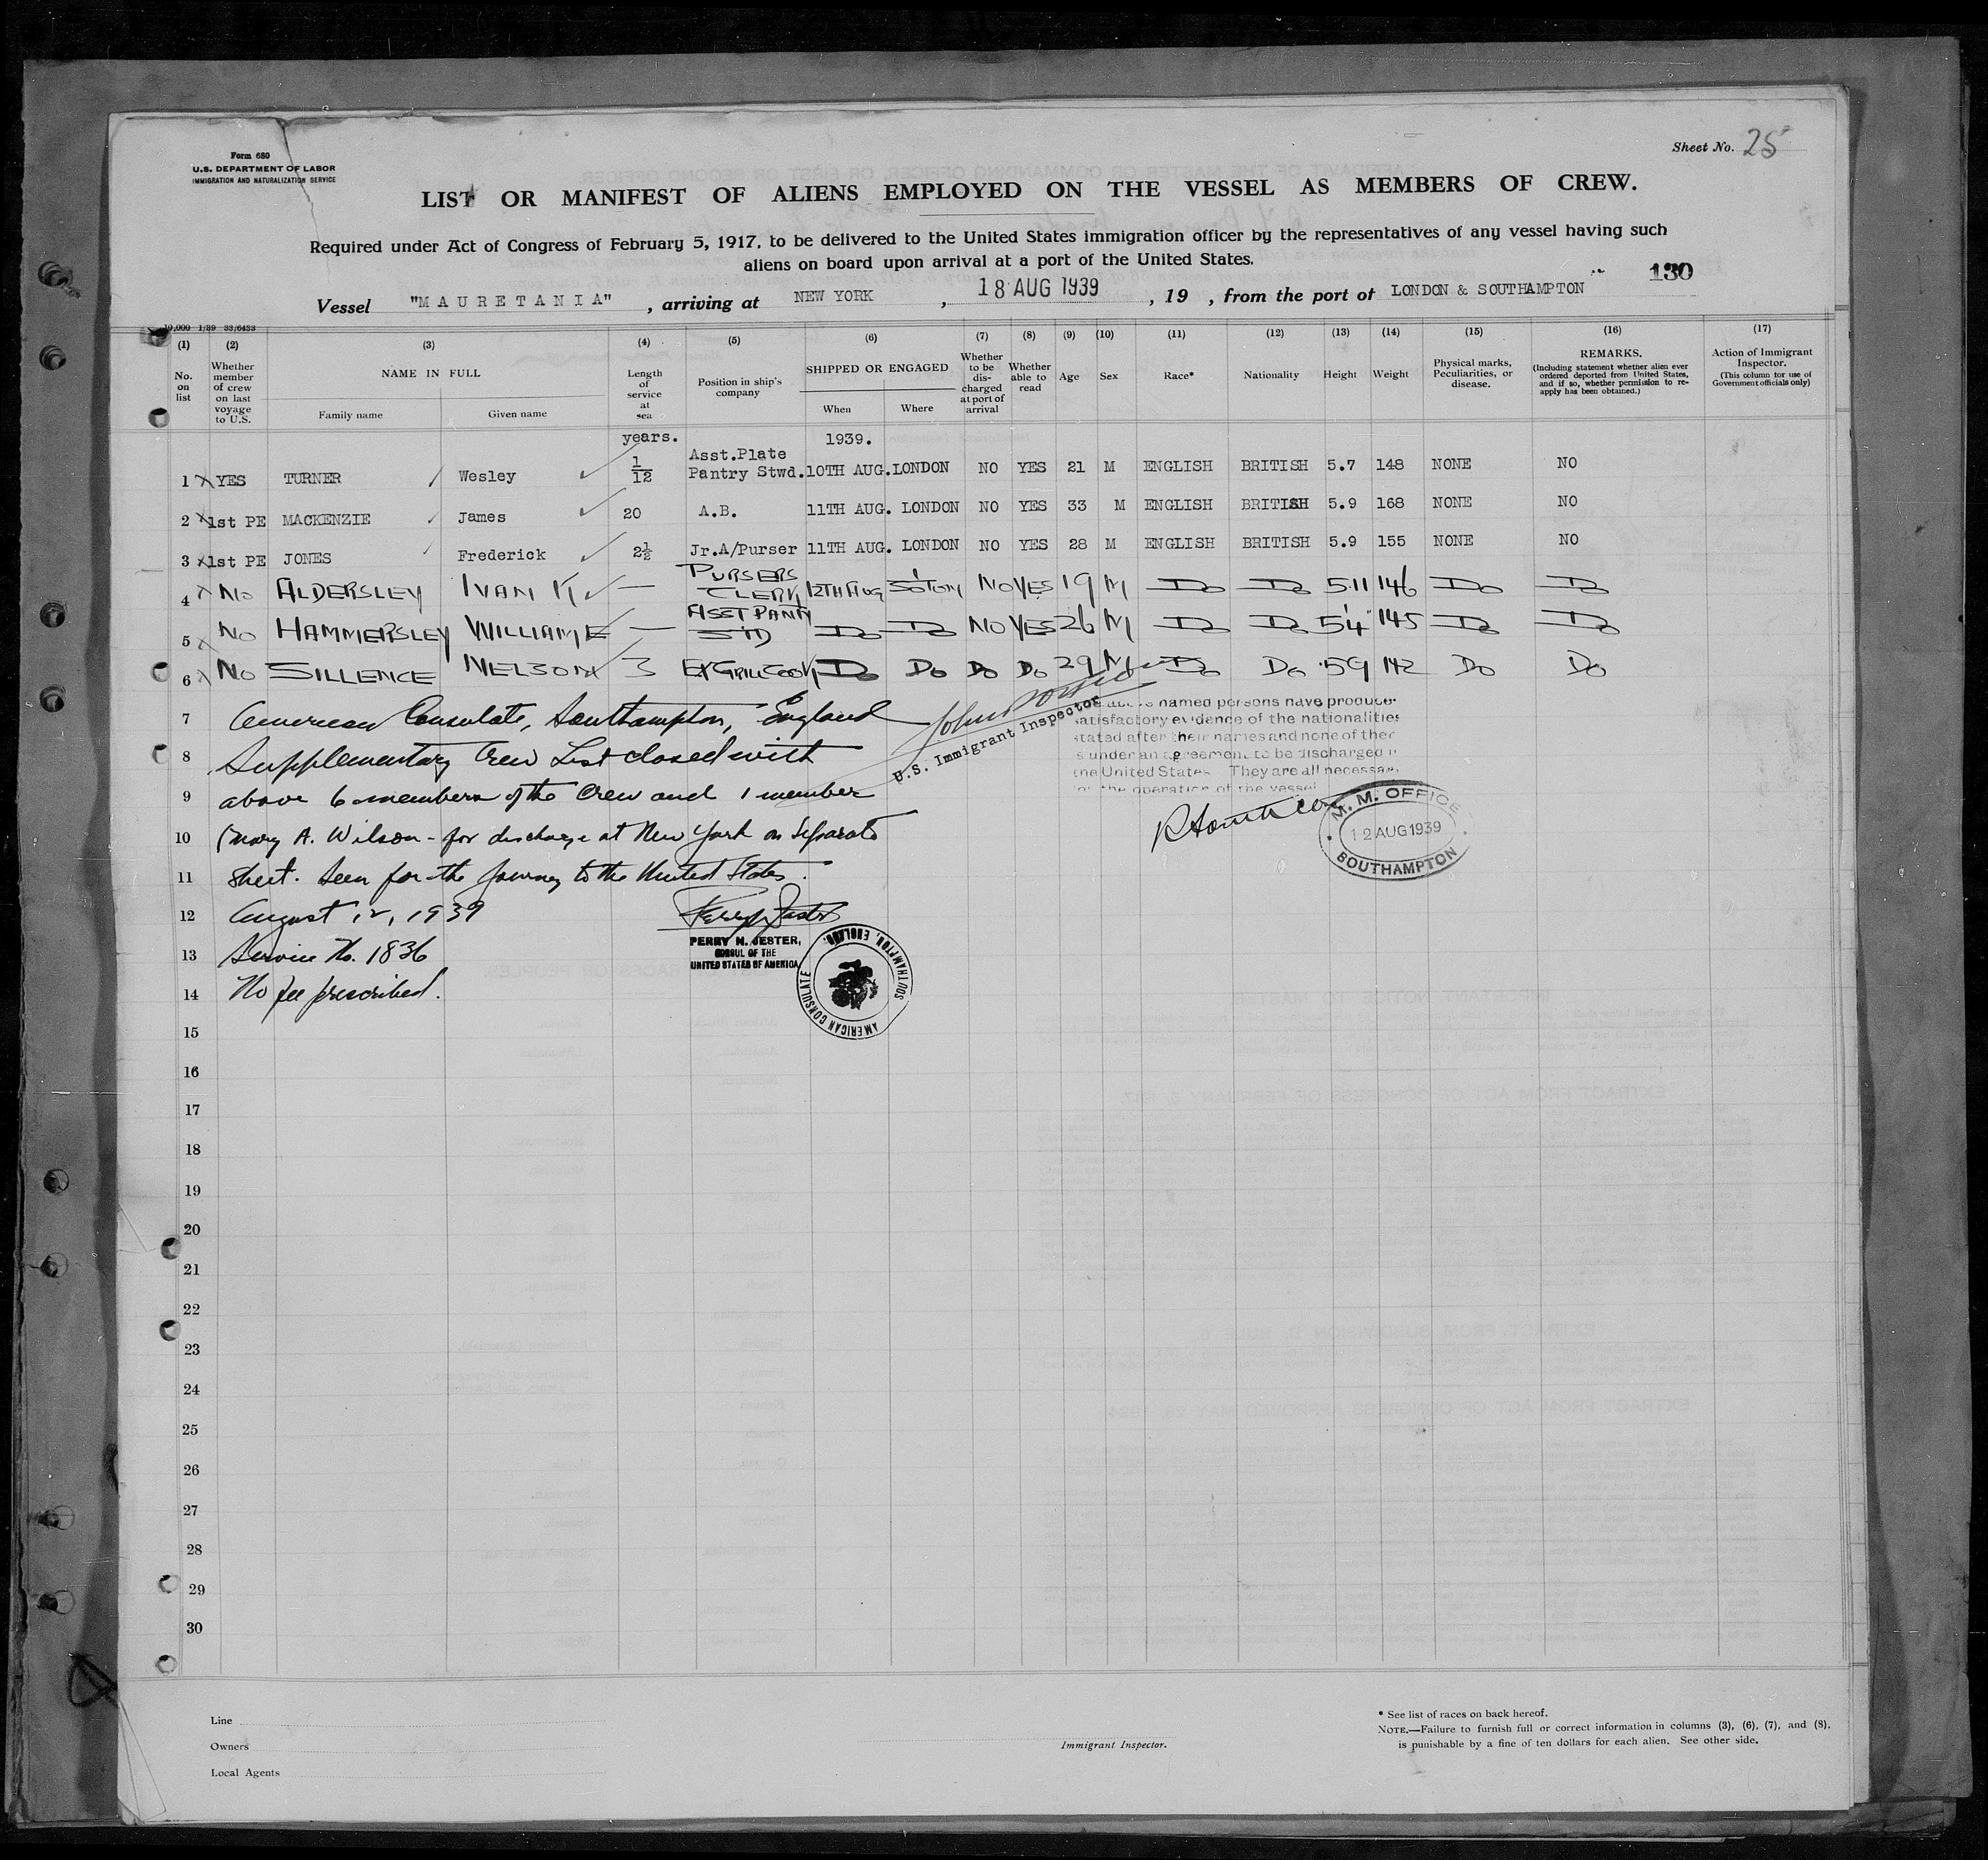 Form 680
U.S. DEPARTMENT OF LABOR
IMMIGRATION AND NATURALIZATION SERVICE
Sheet No. 25
LIST OR MANIFEST OF ALIENS EMPLOYED ON THE VESSEL AS MEMBERS OF CREW.
Required under Act of Congress of February 5, 1917, to be delivered to the United States immigration officer by the representatives of any vessel having such
aliens on board upon arrival at a port of the United States.
130
Vessel "MAURETANIA", arriving at NEW YORK, 18 AUG 1939, 19 , from the port of LONDON & SOUTHAMPTON
10,000 1/39 33/6433
(1) (2) (3) (4) (5) (6) (7) (8) (9) (10) (11) (12) (13) (14) (15) (16) (17)
No. on list
Whether member of crew on last voyage to U.S.
NAME IN FULL
Family name Given name
Length of service at sea
Position in ship's company
SHIPPED OR ENGAGED
When Where
Whether to be discharged at port of arrival
Whether able to read
Age
Sex
Race*
Nationality
Height
Weight
Physical marks, Peculiarities, or disease.
REMARKS.
(Including statement whether alien ever ordered deported from United States, and if so, whether permission to re-apply has been obtained.)
Action of Immigrant Inspector.
(This column for use of Government officials only)
years. 1939.
1 YES TURNER Wesley 1/12 Asst.Plate Pantry Stwd. 10TH AUG. LONDON NO YES 21 M ENGLISH BRITISH 5.7 148 NONE NO
2 1st PE MACKENZIE James 20 A.B. 11TH AUG. LONDON NO YES 33 M ENGLISH BRITISH 5.9 168 NONE NO
3 1st PE JONES Frederick 2½ Jr.A/Purser 11TH AUG. LONDON NO YES 28 M ENGLISH BRITISH 5.9 155 NONE NO
4 NO ALDERSLEY IVAN K — PURSERS CLERK 12TH AUG SOTON NO YES 19 M Do Do 5.11 146 Do Do
5 NO HAMMERSLEY WILLIAM E — ASST PANTY STD Do Do NO YES 26 M Do Do 5'4" 145 Do Do
6 NO SILLENCE NELSON 3 EX GRILL COOK Do Do Do Do 29 M Do Do 59 142 Do Do
7 American Consulate, Southampton, England
8 Supplementary Crew List closed with
9 above 6 members of the crew and 1 member
10 (Mary A. Wilson - for discharge at New York on separate
11 sheet. Seen for the journey to the United States.
12 August 12, 1939
13 Service No. 1836
14 No fee prescribed.
U.S. Immigrant Inspector
named persons have produce
satisfactory evidence of the nationalities
stated after their names and none of ther
s under an agreement to be discharged
the United States They are all necessar
for the operation of the vessel
M. M. OFFICE
12 AUG 1939
SOUTHAMPTON
PERRY N. JESTER,
CONSUL OF THE
UNITED STATES OF AMERICA
AMERICAN CONSULATE
SOUTHAMPTON, ENGLAND.
15
16
17
18
19
20
21
22
23
24
25
26
27
28
29
30
Line
Owners
Local Agents
Immigrant Inspector.
* See list of races on back hereof.
NOTE.—Failure to furnish full or correct information in columns (3), (6), (7), and (8),
is punishable by a fine of ten dollars for each alien. See other side.